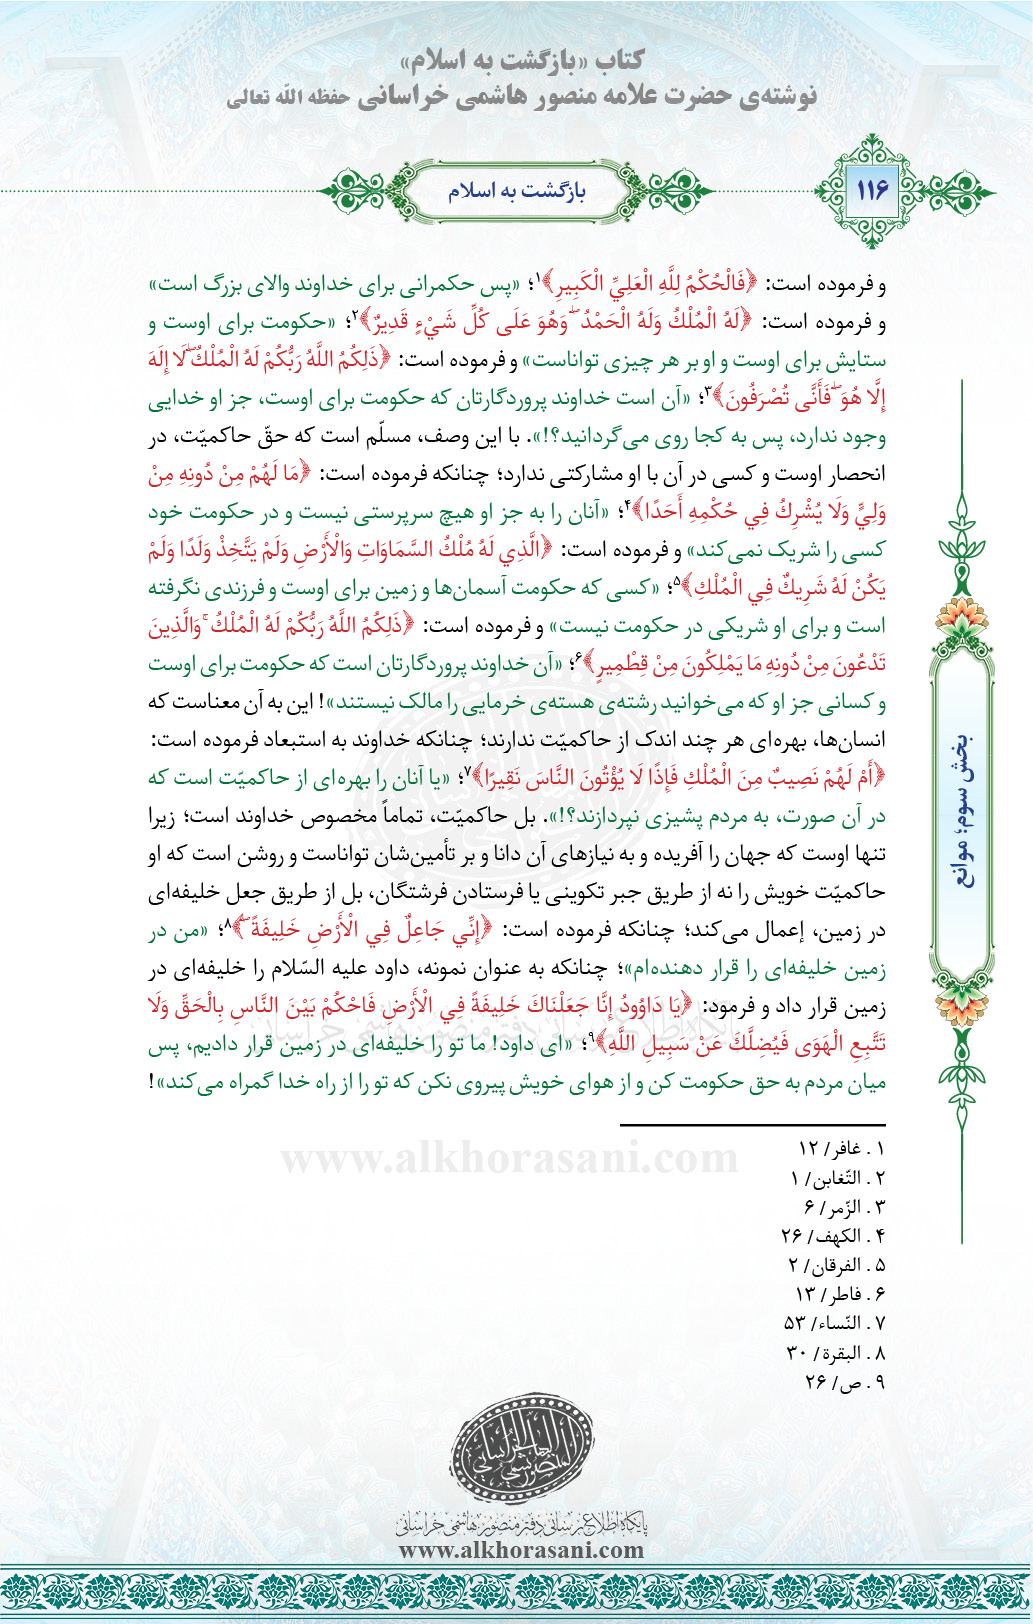 کتاب «بازگشت به اسلام»
نوشته‌ی حضرت علامه منصور هاشمی خراسانی حفظه الله تعالی
۱۱۶
بازگشت به اسلام
و فرموده است: ﴿فَالْحُكْمُ لِلَّهِ الْعَلِيِّ الْكَبِيرِ﴾۱؛ «پس حکمرانی برای خداوند والای بزرگ است»
و فرموده است: ﴿لَهُ الْمُلْكُ وَلَهُ الْحَمْدُ ۖ وَهُوَ عَلَى كُلِّ شَيْءٍ قَدِيرٌ﴾۲؛ «حکومت برای اوست و
ستایش برای اوست و او بر هر چیزی تواناست» و فرموده است: ﴿ذَلِكُمُ اللَّهُ رَبُّكُمْ لَهُ الْمُلْكُ ۖ لَا إِلَهَ
إِلَّا هُوَ ۖ فَأَنَّى تُصْرَفُونَ﴾۳؛ «آن است خداوند پروردگارتان که حکومت برای اوست، جز او خدایی
وجود ندارد، پس به کجا روی می‌گردانید؟!». با این وصف، مسلّم است که حقّ حاکمیّت، در
انحصار اوست و کسی در آن با او مشارکتی ندارد؛ چنانکه فرموده است: ﴿مَا لَهُمْ مِنْ دُونِهِ مِنْ
وَلِيٍّ وَلَا يُشْرِكُ فِي حُكْمِهِ أَحَدًا﴾۴؛ «آنان را به جز او هیچ سرپرستی نیست و در حکومت خود
کسی را شریک نمی‌کند» و فرموده است: ﴿الَّذِي لَهُ مُلْكُ السَّمَاوَاتِ وَالْأَرْضِ وَلَمْ يَتَّخِذْ وَلَدًا وَلَمْ
يَكُنْ لَهُ شَرِيكٌ فِي الْمُلْكِ﴾۵؛ «کسی که حکومت آسمان‌ها و زمین برای اوست و فرزندی نگرفته
است و برای او شریکی در حکومت نیست» و فرموده است: ﴿ذَلِكُمُ اللَّهُ رَبُّكُمْ لَهُ الْمُلْكُ ۚ وَالَّذِينَ
تَدْعُونَ مِنْ دُونِهِ مَا يَمْلِكُونَ مِنْ قِطْمِيرٍ﴾۶؛ «آن خداوند پروردگارتان است که حکومت برای اوست
و کسانی جز او که می‌خوانید رشته‌ی هسته‌ی خرمایی را مالک نیستند»! این به آن معناست که
انسان‌ها، بهره‌ای هر چند اندک از حاکمیّت ندارند؛ چنانکه خداوند به استبعاد فرموده است:
﴿أَمْ لَهُمْ نَصِيبٌ مِنَ الْمُلْكِ فَإِذًا لَا يُؤْتُونَ النَّاسَ نَقِيرًا﴾۷؛ «یا آنان را بهره‌ای از حاکمیّت است که
در آن صورت، به مردم پشیزی نپردازند؟!». بل حاکمیّت، تماماً مخصوص خداوند است؛ زیرا
تنها اوست که جهان را آفریده و به نیازهای آن دانا و بر تأمین‌شان تواناست و روشن است که او
حاکمیّت خویش را نه از طریق جبر تکوینی یا فرستادن فرشتگان، بل از طریق جعل خلیفه‌ای
در زمین، إعمال می‌کند؛ چنانکه فرموده است: ﴿إِنِّي جَاعِلٌ فِي الْأَرْضِ خَلِيفَةً ۖ﴾۸؛ «من در
زمین خلیفه‌ای را قرار دهنده‌ام»؛ چنانکه به عنوان نمونه، داود علیه السّلام را خلیفه‌ای در
زمین قرار داد و فرمود: ﴿يَا دَاوُودُ إِنَّا جَعَلْنَاكَ خَلِيفَةً فِي الْأَرْضِ فَاحْكُمْ بَيْنَ النَّاسِ بِالْحَقِّ وَلَا
تَتَّبِعِ الْهَوَى فَيُضِلَّكَ عَنْ سَبِيلِ اللَّهِ﴾۹؛ «ای داود! ما تو را خلیفه‌ای در زمین قرار دادیم، پس
میان مردم به حق حکومت کن و از هوای خویش پیروی نکن که تو را از راه خدا گمراه می‌کند»!
بخش سوم؛ موانع
پایگاه اطلاع‌رسانی دفتر منصور هاشمی خراسانی
www.alkhorasani.com
۱ . غافر/ ۱۲
۲ . التّغابن/ ۱
۳ . الزّمر/ ۶
۴ . الکهف/ ۲۶
۵ . الفرقان/ ۲
۶ . فاطر/ ۱۳
۷ . النّساء/ ۵۳
۸ . البقرة/ ۳۰
۹ . ص/ ۲۶
پایگاه اطلاع‌رسانی دفتر منصور هاشمی خراسانی
www.alkhorasani.com